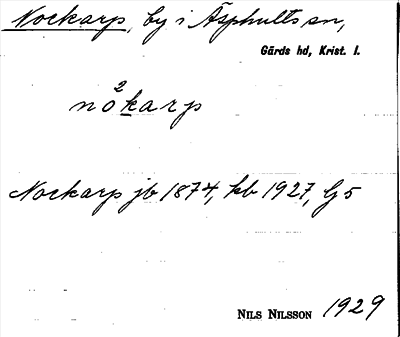 Nockarp, by i Äsphults sn,
Gärds hd, Krist. l.
2
nokarp
Nockarp jb 1874, kb 1927, Gj 5
NILS NILSSON 1929